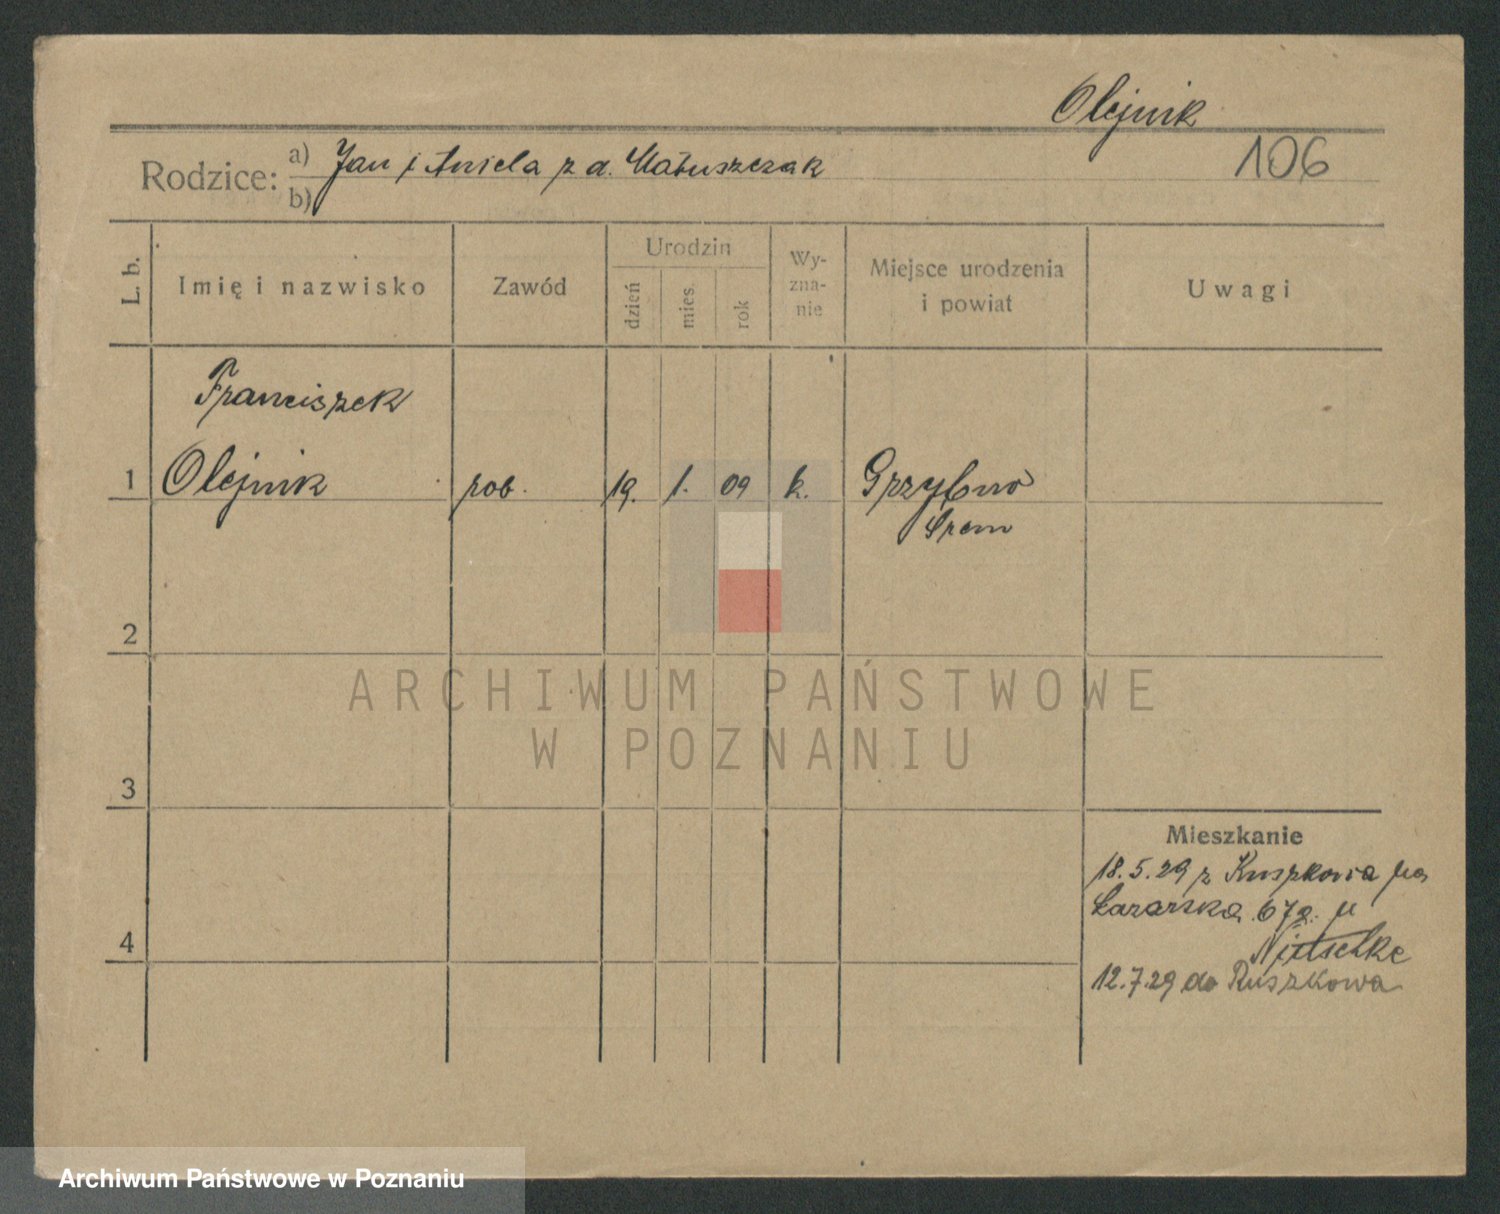 Olejnik
106
Rodzice: a) Jan i Aniela z d. Matuszczak
b)
L. b.
Imię i nazwisko
Zawód
Urodzin
dzień
mies.
rok
Wy-
zna-
nie
Miejsce urodzenia
i powiat
Uwagi
Franciszek
1 Olejnik rob. 19. 1. 09 k. Grzybno
Śrem
2
ARCHIWUM PAŃSTWOWE
W POZNANIU
3
Mieszkanie
18.5.29 z Ruszkowa na
Łazarską 67a. u
4
Nietschke
12.7.29 do Ruszkowa
Archiwum Państwowe w Poznaniu